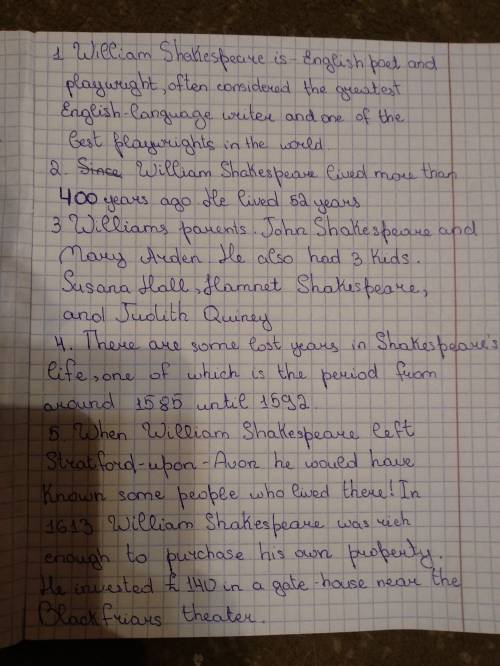 1 William Shakespeare is - English poet and
playwright, often considered the greatest
English-language writer and one of the
best playwrights in the world.
2. Since William Shakespeare lived more than
400 years ago He lived 52 years
3 Williams parents. John Shakespeare and
Mary Arden He also had 3 kids.
Susana Hall, Hamnet Shakespeare,
and Judith Quiney
4. There are some lost years in Shakespeare's
life, one of which is the period from
around 1585 until 1592.
5. When William Shakespeare left
Stratford-upon-Avon he would have
Known some people who lived there! In
1613 William Shakespeare was rich
enough to purchase his own property.
He invested £ 140 in a gate-house near the
Blackfriars theater.